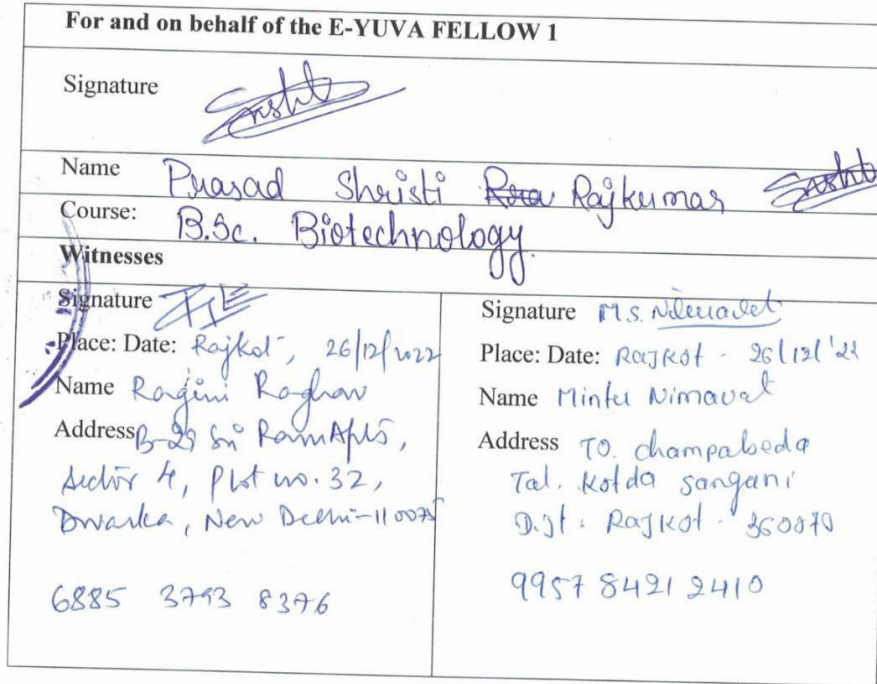 For and on behalf of the E-YUVA FELLOW 1
Signature
Name Prasad Shristi Rajkumar
Course: B.Sc. Biotechnology
Witnesses
Signature
Place: Date: Rajkot, 26/12/2022
Name Ragini Raghav
Address B-29 Sri Ram Apts,
Sector 4, Plot no. 32,
Dwarka, New Delhi-110075
6885 3793 8376
Signature M.S. Nimavat
Place: Date: Rajkot - 26/12/'22
Name Mintu Nimavat
Address TO. champabeda
Tal. Kotda sangani
D.jt. Rajkot - 360070
9957 8421 2410